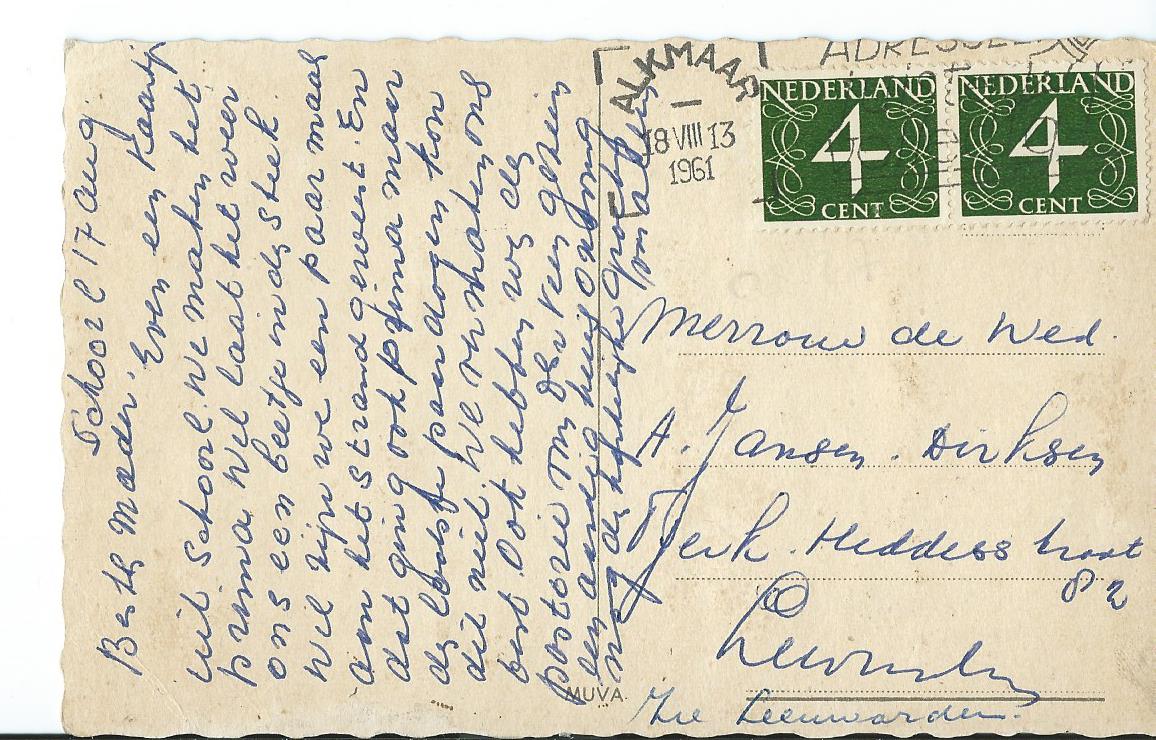 Schoorl 17 Aug
Beste Moeder. Even een kaartje
uit Schoorl. We maken het
prima. Wel laat het weer
ons een beetje in de steek
wel zijn we een paar maal
aan het strand geweest. En
dat ging ook prima maar
de laatste paar dagen kon
dit niet. We vermaken ons
best. Ook hebben we de
pastorie van Ds v Veen gezien
een aardig huis
nog de hartelijke groeten
van allen
ALKMAAR
18 VIII 13
1961
NEDERLAND
4
CENT
NEDERLAND
4
CENT
Mevrouw de Wed.
A. Jansen. Dirksen
Tjerk. Heddesstraat
82
Leeuwarden
MUVA
Leeuwarden.